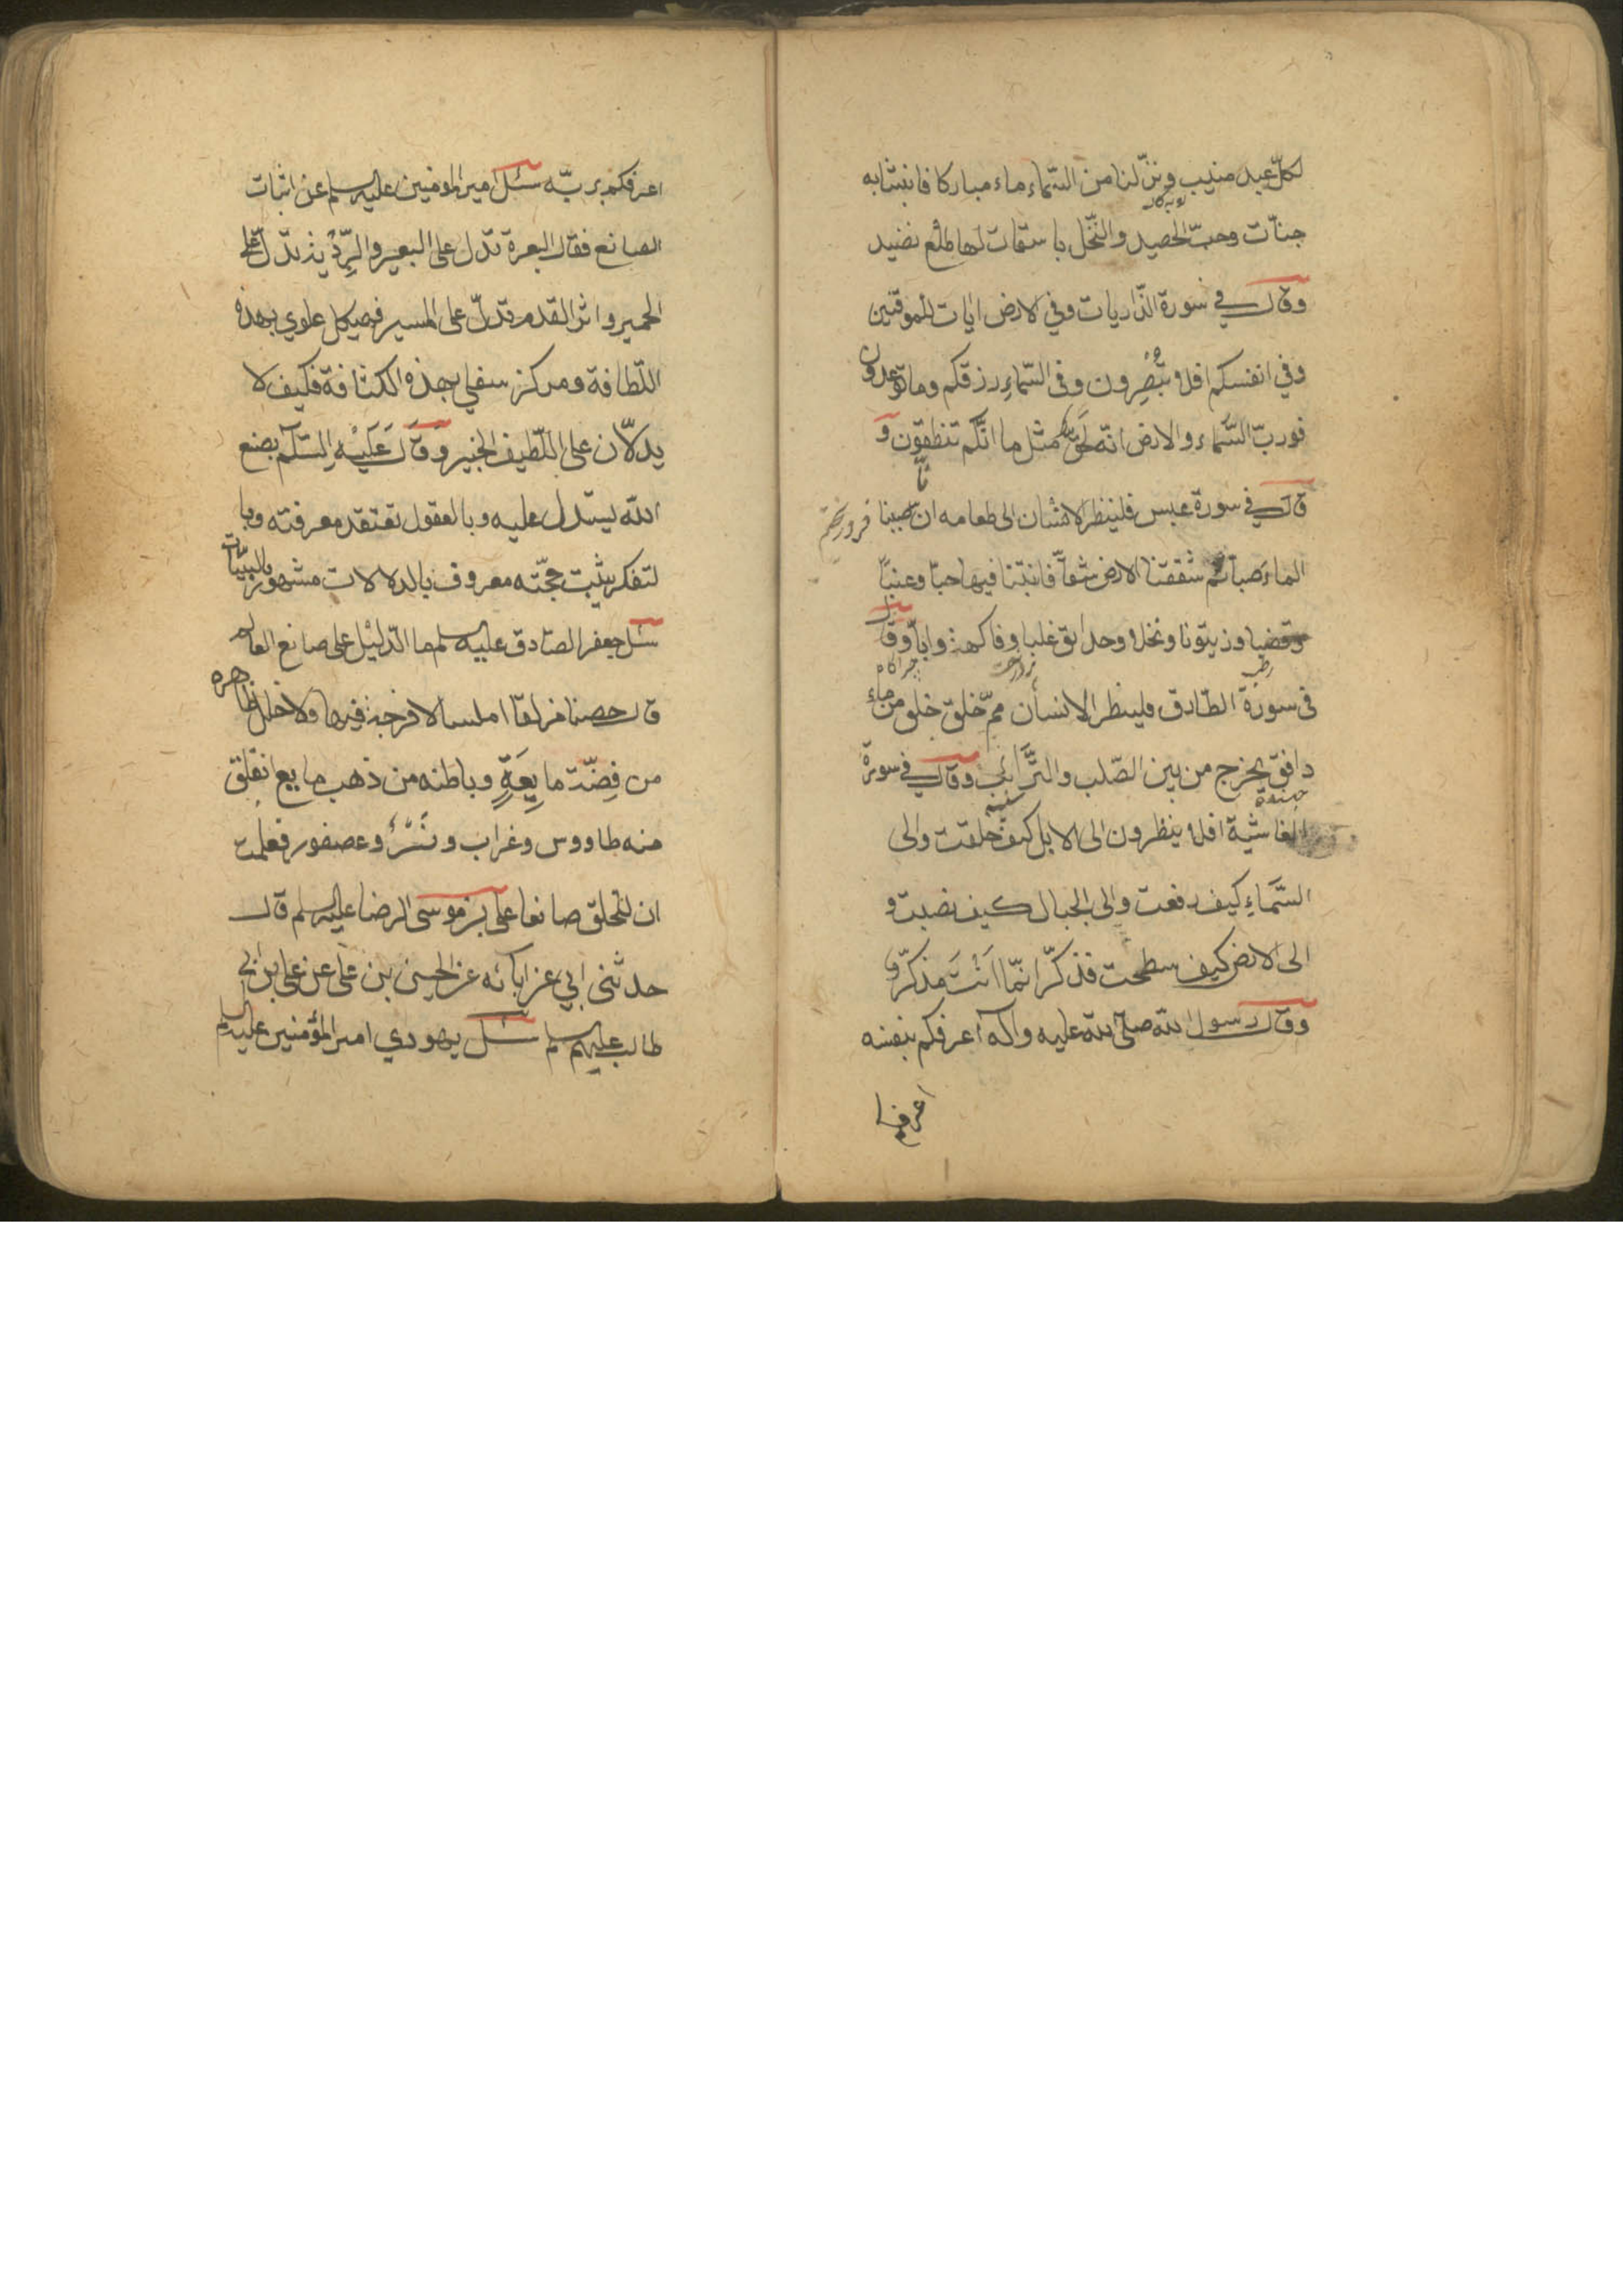 لكلّ عبد منيب ونزّلنا من السّماء ماء مباركا فانبتنا به
جنّات وحبّ الحصيد والنّخل باسقات لها طلع نضيد
وقال في سورة الذّاريات وفي الارض ايات للموقنين
وفي انفسكم افلا تبصرون وفي السّماء رزقكم وما توعدون
فوربّ السّماء والارض انّه لحقّ مثل ما انّكم تنطقون و
قال في سورة عبس فلينظر الانسان الى طعامه انّا صببنا
الماء صبّا ثم شققنا الارض شقّا فانبتنا فيها حبّا وعنبًا
وقضبا وزيتونا ونخلا وحدائق غلبا وفاكهة وابّا وقال
في سورة الطّارق فلينظر الانسان ممّ خلق خلق من ماء
دافق يخرج من بين الصّلب والتّرَائب وقال في سورة
الغاشية افلا ينظرون الى الابل كيف خلقت والى
السّمَاءِ كيف رفعت والى الجبال كيف نصبت و
الى الارض كيف سطحت فذكّر انّما اَنْتَ مذكّر و
وقال رسول الله صلّى الله عليه وآله اعرفكم بنفسه
اعرفكم
اعرفكم بربّه سئل امير المومنين عليه السلم عن اثبات
الصانع فقال البعرة تدل على البعير والرّوث تدلّ على
الحمير واثر القدم تدلّ على المسير فهيكل علوي بهذه
اللّطافة ومركز سفلي بهذه الكثافة فكيف لا
يدلّان على اللّطيف الخبير وقال عَلَيْهِ السّلم بصنع
الله يستدل عليه وبالعقول تعتقد معرفته وبا
لتفكر يثبت حجّته معروف بالدلالات مشهور بالبيّنات
سئل جعفر الصّادق عليه السلم ما الدّليل على صانع العالم
قال حصنا مزلقا املسا لا فرجة فيها ولا خلل ظاهره
من فِضّة مايِعَةٍ وباطنه من ذهب مايع انفلق
منه طاووس وغراب ونَسْرٌ وعصفور فعلمت
ان للخلق صانعا على بن موسى الرضا عليه السلم قال
حدثني ابي عن آبائه عن الحسين بن على عن على بن ابي
طالب عليهم السلم سئل يهودي امير المؤمنين عليه السلم